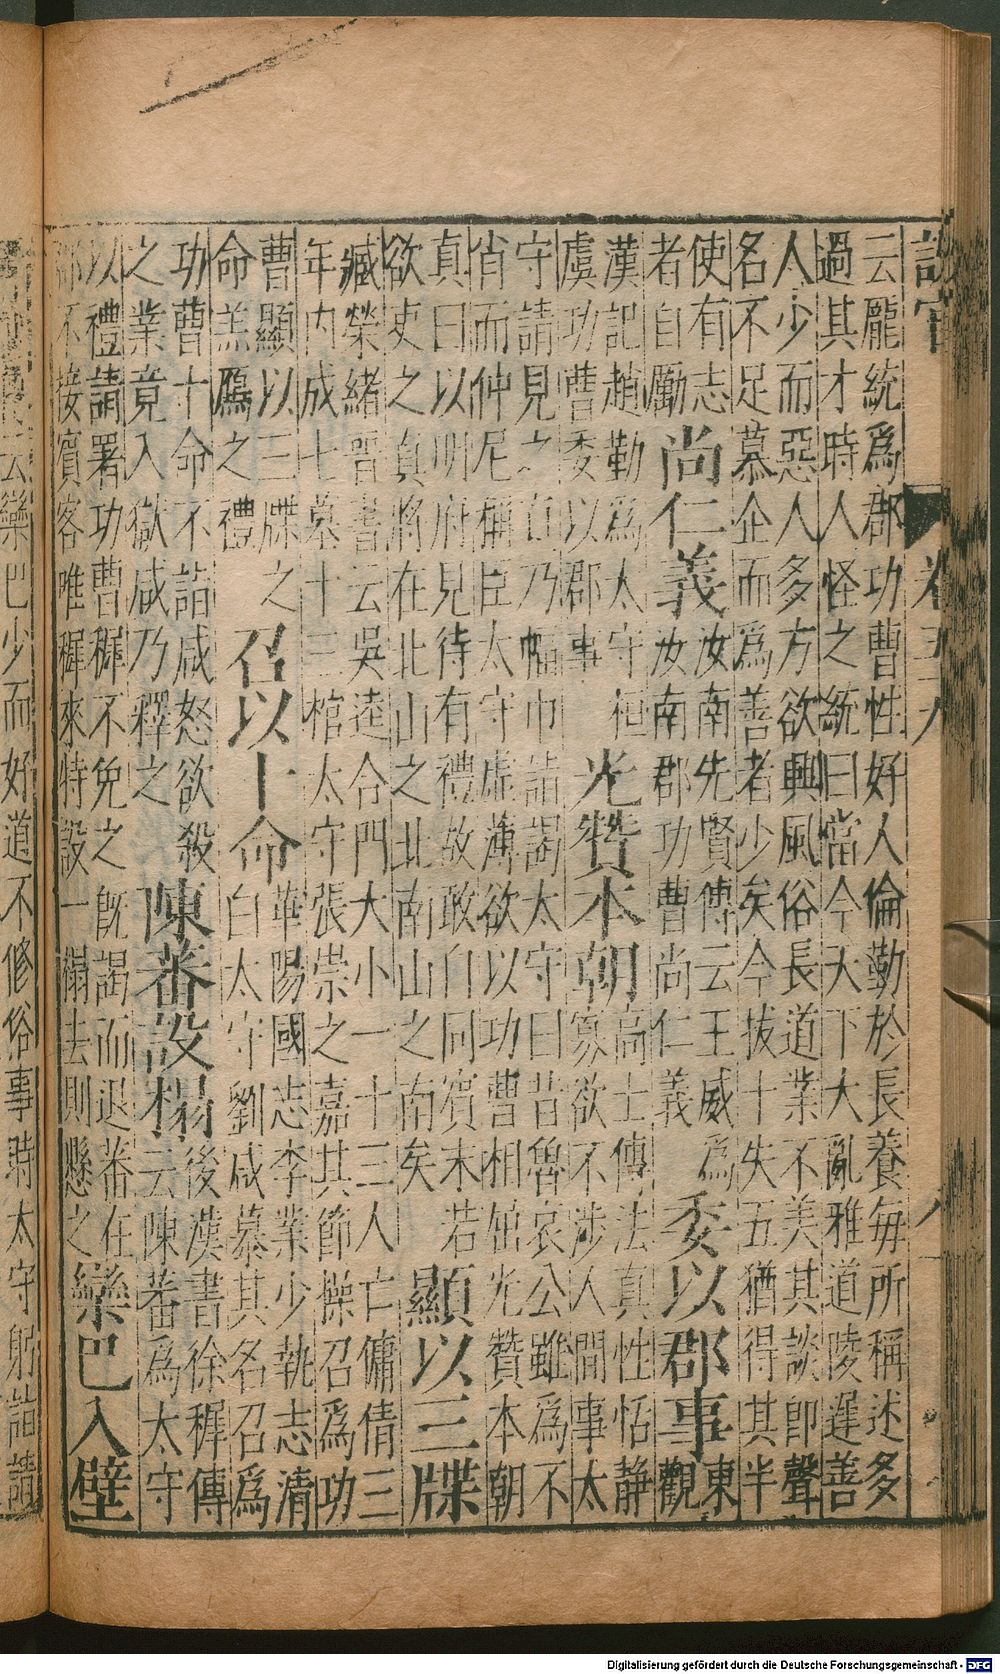 設官
八
云龐統爲郡功曹性好人倫勤於長養每所稱述多
過其才時人怪之統曰當今天下大亂雅道陵遲善
人少而惡人多方欲興風俗長道業不美其談即聲
名不足慕企而爲善者少矣今拔十失五猶得其半
使有志
者自勵
尚仁義
汝南先賢傳云王威爲
汝南郡功曹尚仁義
委以郡事
東
觀
漢記趙勤爲太守桓
虞功曹委以郡事
光贊本朝
高士傳法真性恬静
寡欲不涉人間事太
守請見之真乃幅巾詣謁太守曰昔魯哀公雖爲不
肖而仲尼稱臣太守虚薄欲以功曹相屈光贊本朝
真曰以明府見待有禮故敢自同賓末若
欲吏之真將在北山之北南山之南矣
顯以三牒
臧榮緒晉書云吳逵合門大小一十三人亡傭倩三
年内成七墓十三棺太守張崇之嘉其節操召爲功
曹顯以三牒之
命羔鴈之禮
召以十命
華陽國志李業少執志清
白太守劉咸慕其名召爲
功曹十命不詣咸怒欲殺
之業竟入獄咸乃釋之
陳蕃設榻
後漢書徐穉傳
云陳蕃爲太守
以禮請署功曹穉不免之既謁而退蕃在
郡不接賓客唯穉來特設一榻去則懸之
欒巴入壁
云欒巴少而好道不修俗事時太守躬詣請
Digitalisierung gefördert durch die Deutsche Forschungsgemeinschaft - DFG